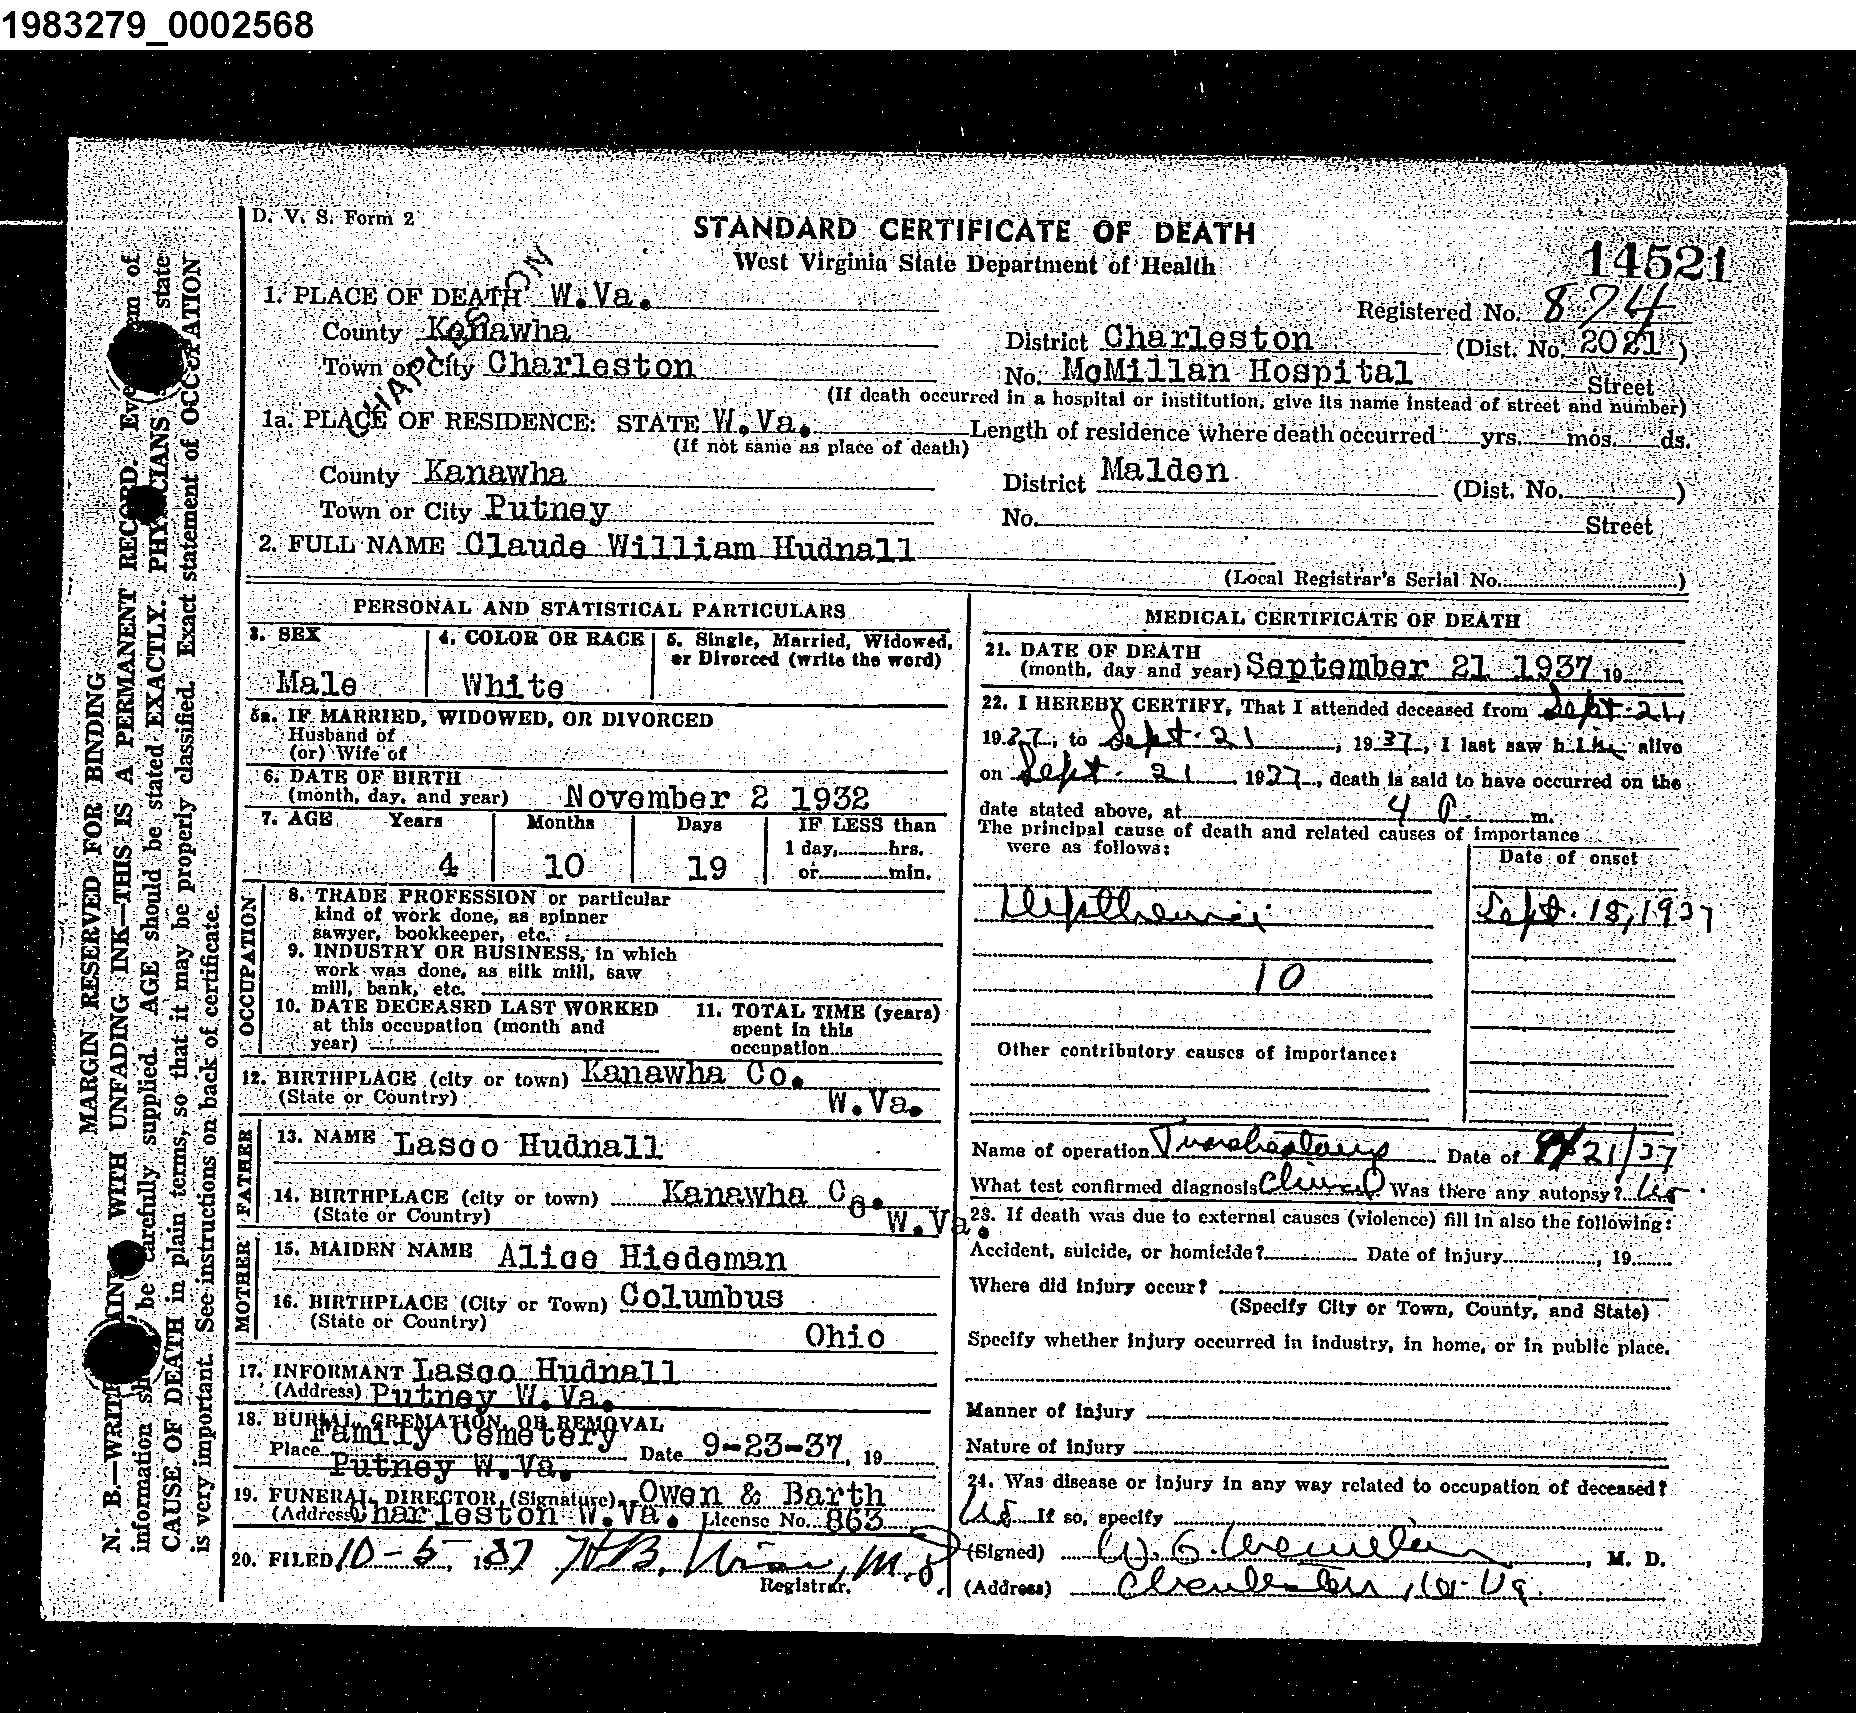 1983279_0002568
D. V. S. Form 2
STANDARD CERTIFICATE OF DEATH
West Virginia State Department of Health
14521
CHARLESTON
1. PLACE OF DEATH W.Va.
Registered No. 874
County Kanawha
District Charleston (Dist. No. 2021)
Town or City Charleston
No. McMillan Hospital Street
(If death occurred in a hospital or institution, give its name instead of street and number)
1a. PLACE OF RESIDENCE: STATE W.Va. Length of residence where death occurred yrs. mos. ds.
(If not same as place of death)
County Kanawha
District Malden (Dist. No. )
Town or City Putney
No. Street
2. FULL NAME Claude William Hudnall
(Local Registrar's Serial No. )
PERSONAL AND STATISTICAL PARTICULARS
3. SEX
Male
4. COLOR OR RACE
White
5. Single, Married, Widowed,
or Divorced (write the word)
5a. IF MARRIED, WIDOWED, OR DIVORCED
Husband of
(or) Wife of
6. DATE OF BIRTH
(month, day, and year) November 2 1932
7. AGE Years Months Days IF LESS than
1 day, hrs.
4 10 19 or min.
OCCUPATION
8. TRADE PROFESSION or particular
kind of work done, as spinner
sawyer, bookkeeper, etc.
9. INDUSTRY OR BUSINESS, in which
work was done, as silk mill, saw
mill, bank, etc.
10. DATE DECEASED LAST WORKED
at this occupation (month and
year)
11. TOTAL TIME (years)
spent in this
occupation
12. BIRTHPLACE (city or town) Kanawha Co.
(State or Country) W.Va.
FATHER
13. NAME Lasco Hudnall
14. BIRTHPLACE (city or town) Kanawha Co.
(State or Country) W.Va.
MOTHER
15. MAIDEN NAME Alice Hiedeman
16. BIRTHPLACE (City or Town) Columbus
(State or Country) Ohio
17. INFORMANT Lasco Hudnall
(Address) Putney W.Va.
18. BURIAL, CREMATION, OR REMOVAL
Place Family Cemetery Date 9-23-37, 19
Putney W.Va.
19. FUNERAL DIRECTOR (Signature) Owen & Barth
(Address) Charleston W.Va. License No. 863
20. FILED 10-5, 1937 H.B. M.D
Registrar.
MEDICAL CERTIFICATE OF DEATH
21. DATE OF DEATH
(month, day and year) September 21 1937 19
22. I HEREBY CERTIFY, That I attended deceased from Sept. 21,
1937, to Sept. 21, 1937, I last saw him alive
on Sept. 21 1937, death is said to have occurred on the
date stated above, at 4 P. m.
The principal cause of death and related causes of importance
were as follows:
Date of onset
Diptheria Sept. 18, 1937
10
Other contributory causes of importance:
Name of operation Tracheotomy Date of 9/21/37
What test confirmed diagnosis Clinical Was there any autopsy? No
23. If death was due to external causes (violence) fill in also the following:
Accident, suicide, or homicide? Date of injury , 19
Where did injury occur?
(Specify City or Town, County, and State)
Specify whether injury occurred in industry, in home, or in public place.
Manner of injury
Nature of injury
24. Was disease or injury in any way related to occupation of deceased?
No If so, specify
(Signed) W. , M. D.
(Address) Charleston, W. Va.
MARGIN RESERVED FOR BINDING
N. B.—WRITE WITH UNFADING INK—THIS IS A PERMANENT RECORD. Every of
information should be carefully supplied. AGE should be stated EXACTLY. PHYSICIANS state
CAUSE OF DEATH in plain terms, so that it may be properly classified. Exact statement of OCCUPATION
is very important. See instructions on back of certificate.